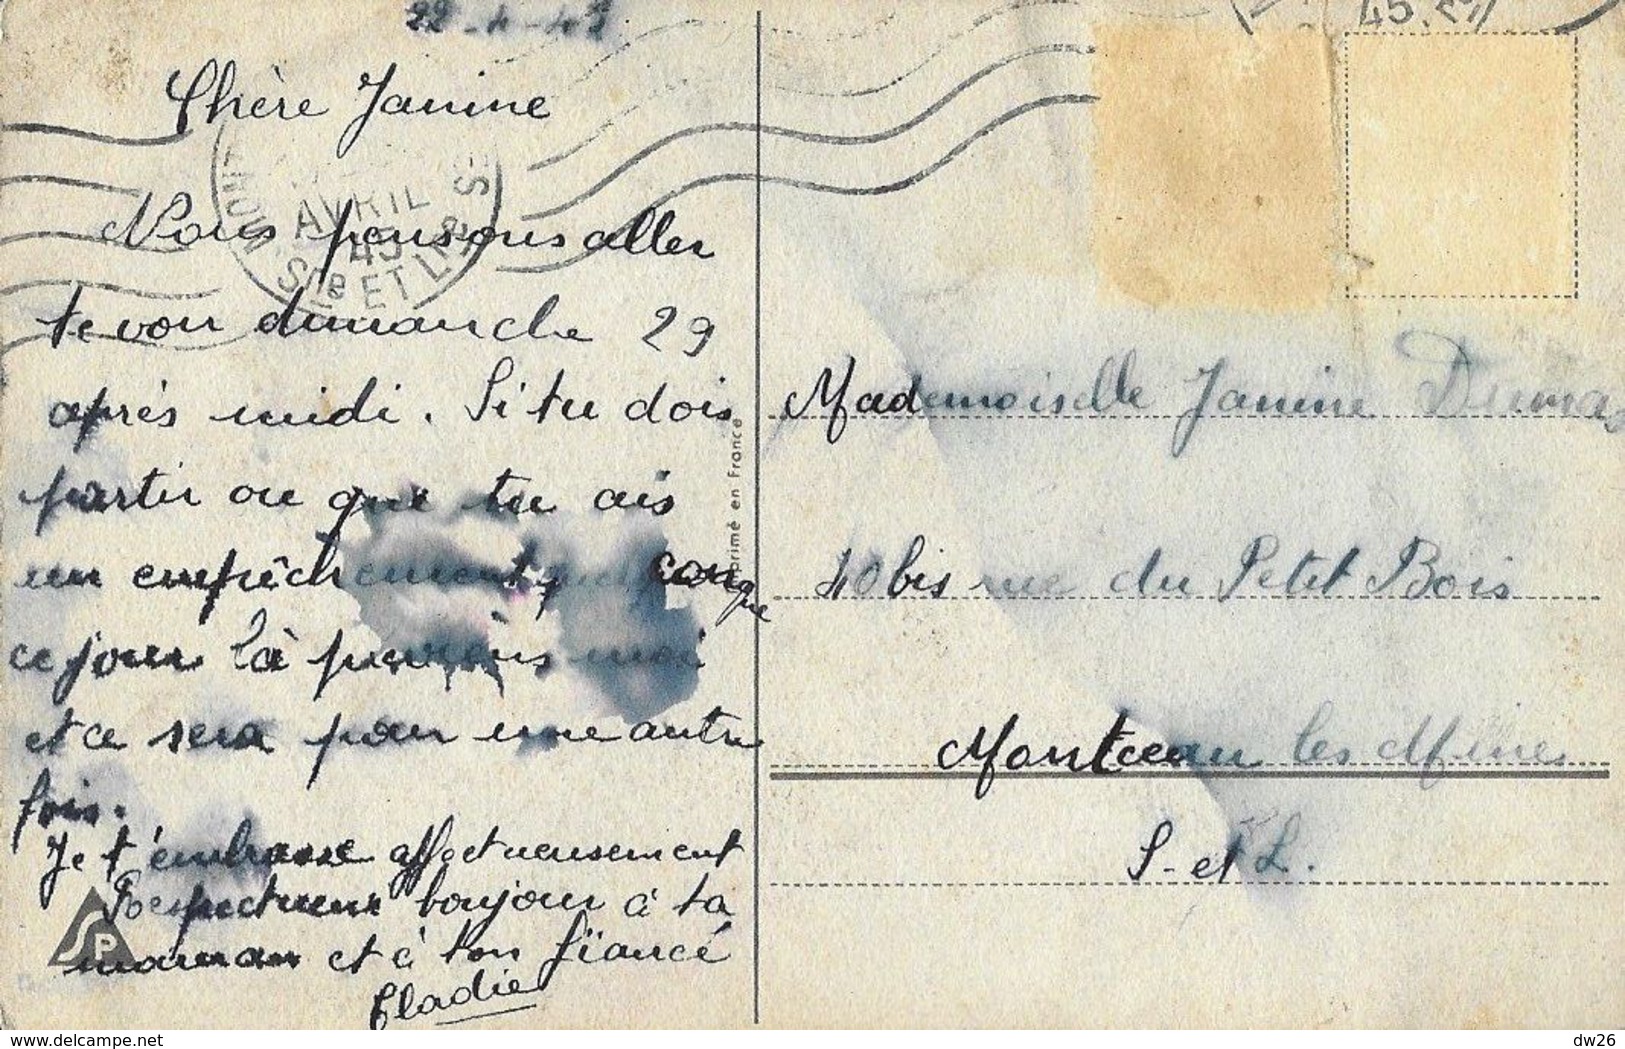 22-4-45
Chère Janine
Nous pensons aller
te voir dimanche 29
après midi. Si tu dois
partir ou que tu ais
un empêchement quelconque
ce jour là préviens moi
et ce sera pour une autre
fois.
Je t'embrasse affectueusement
Respectueux bonjour à ta
maman et à ton fiancé
Cladie
AVRIL
45
Sne ET L
45
Imprimé en France
SP
Mademoiselle Janine Dumas
40 bis rue du Petit Bois
Montceau les Mines
S.-et L.
www.delcampe.net
dw26